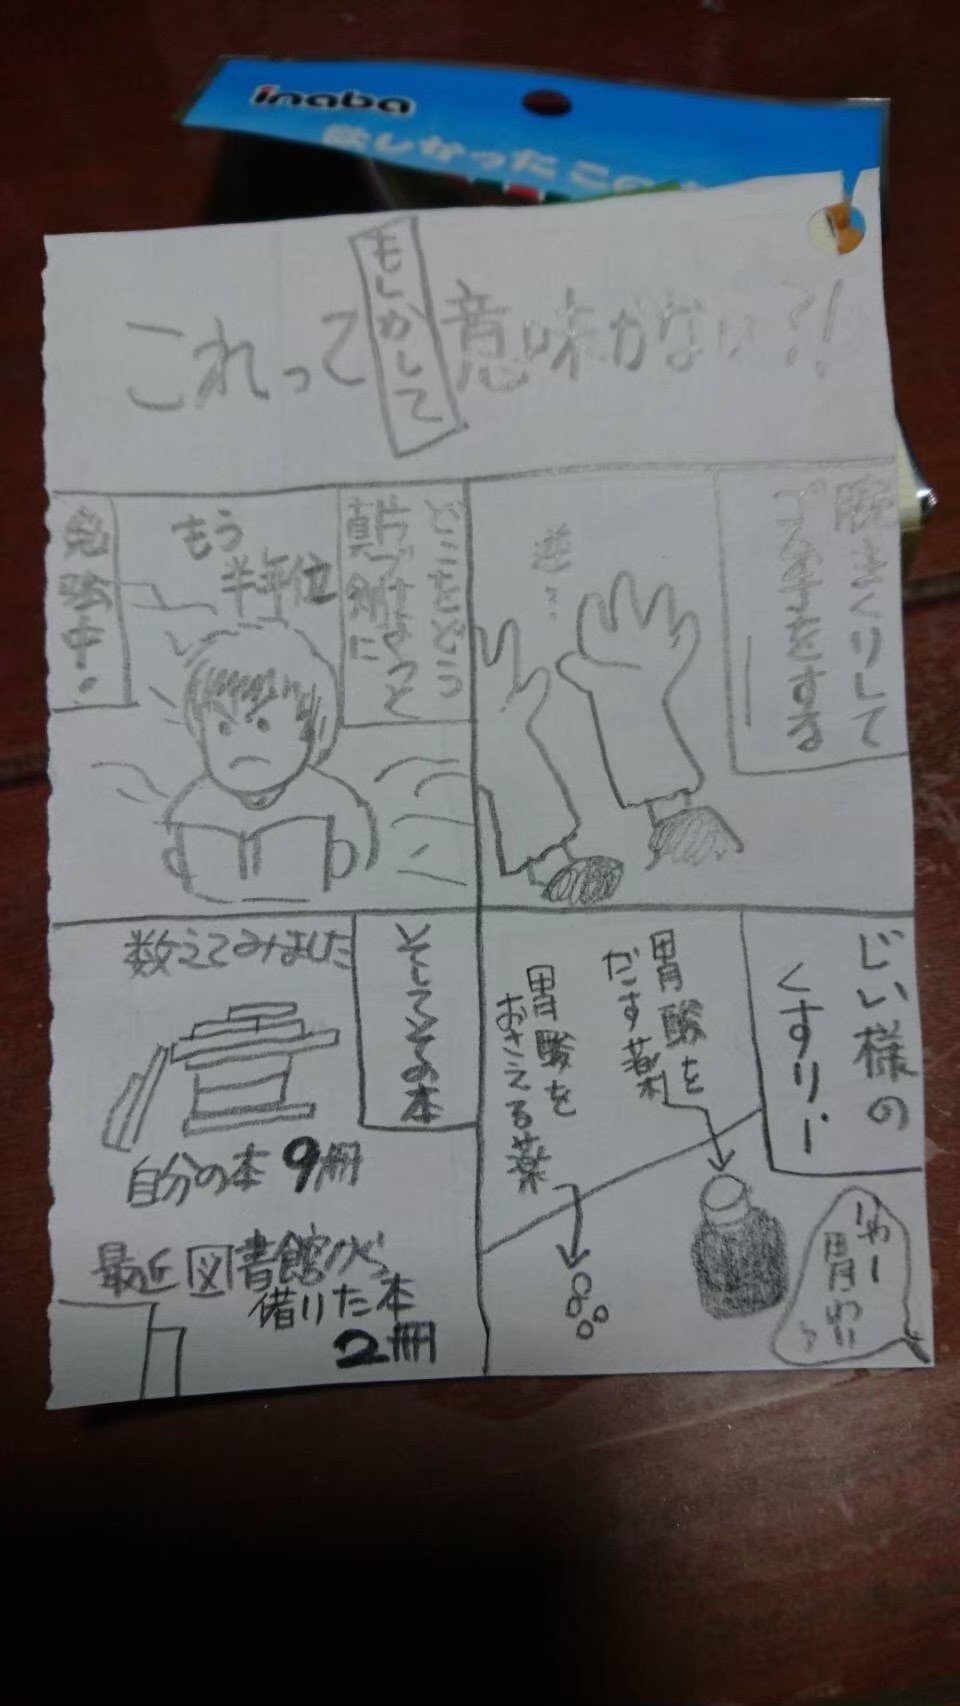 inaba
欲しかった この
これってもしかして意味がない?!
腕まくりして
てぶくろをする
逆?
どこをどう
片づけようと
真剣に
もう
半年位
勉強中!
じい様の
くすり…
胃酸を
だす薬
胃酸を
おさえる薬
そしてその本
数えてみました
自分の本 9冊
最近 図書館から
借りた本
2冊